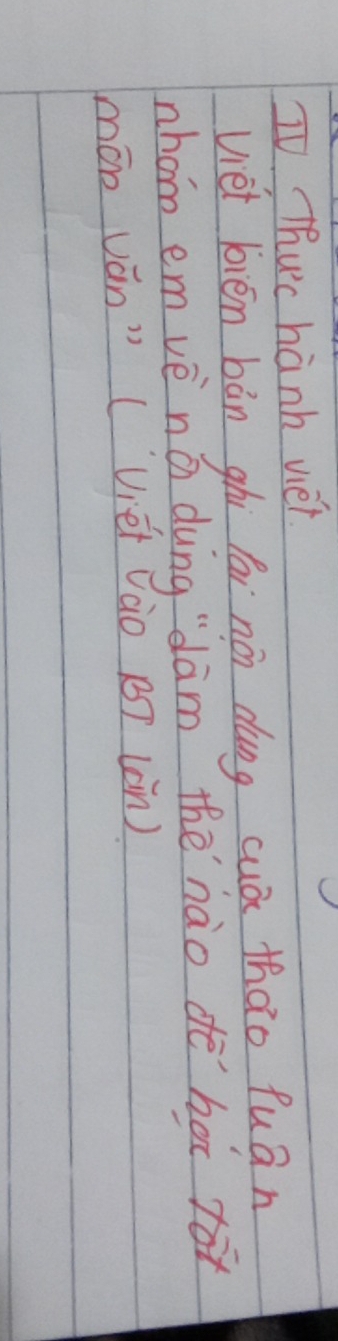 IV Thực hành viết.
Viết biên bản ghi lại nội dung cuộc thảo luận
nhóm em về nội dung "làm thế nào để học tốt
môn văn" ( Viết vào BT lớn)